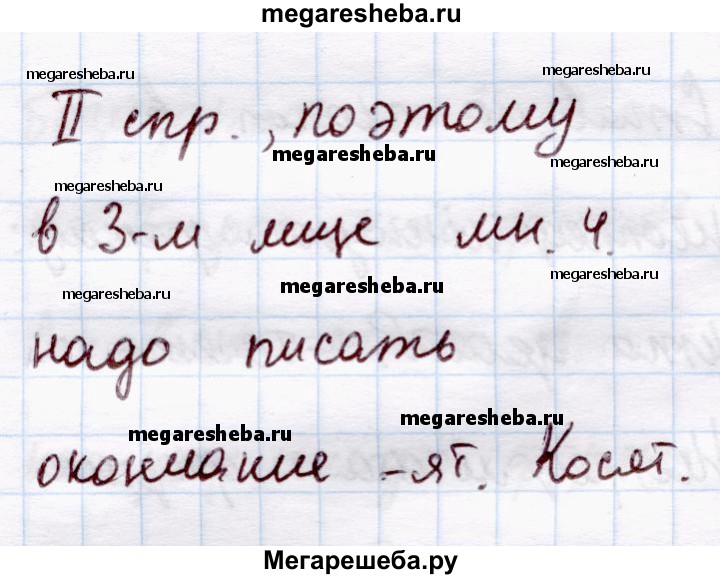 megaresheba.ru
megaresheba.ru
megaresheba.ru
II спр., поэтому
megaresheba.ru
megaresheba.ru
в 3-м лице мн. ч.
megaresheba.ru
megaresheba.ru
megaresheba.ru
надо писать
megaresheba.ru
megaresheba.ru
окончание -ят. Косят.
Мегарешеба.ру